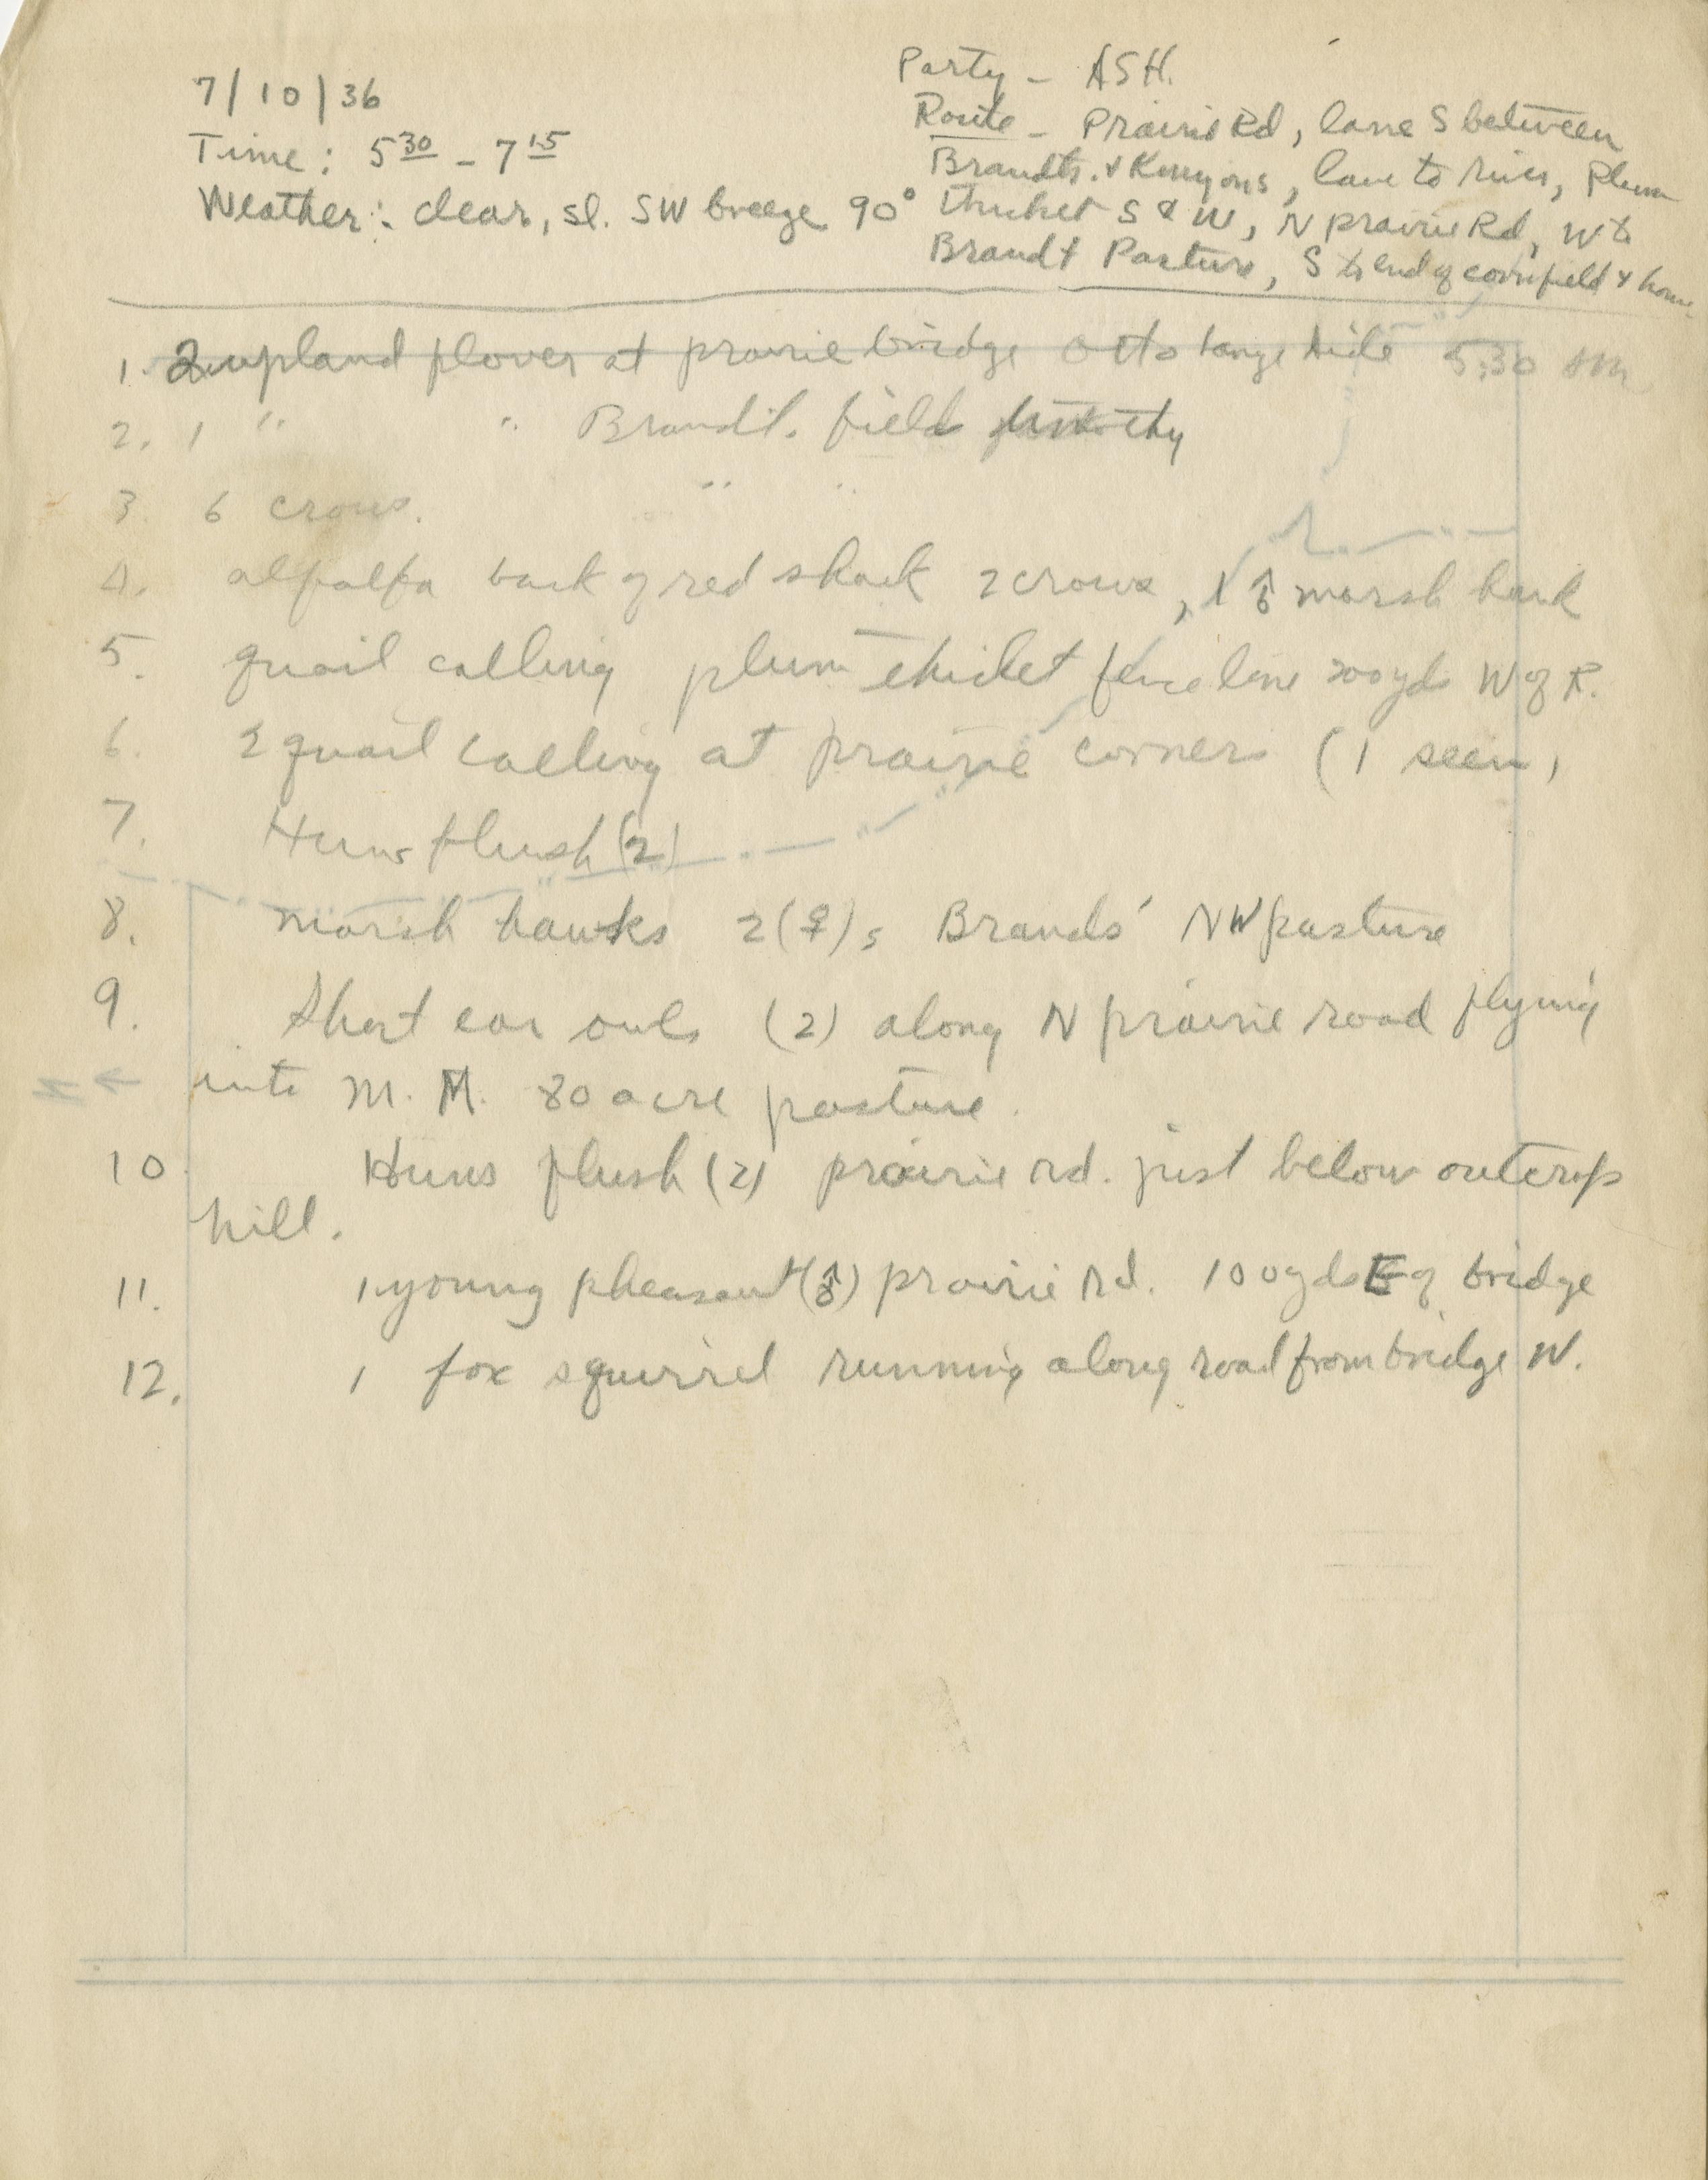 7/10/36
Time: 5 30 - 7 15
Weather: clear, sl. SW breeze 90°
Party - ASH.
Route - Prairie Rd, lane S between
Brandts. & Kenyons, lane to river, Plum
thicket S & W, N prairie Rd, W to
Brandt Pasture, S to end of cornfield & home
1. 2 upland plover at prairie bridge Otto 5:30
2. 1 " " Brandt. field timothy
3. 6 crows. " "
4. alfalfa back of red shack 2 crows, 1 ♂ marsh hawk
5. quail calling plum thicket fence line 200 yds W of R.
6. 2 quail calling at prairie corner (1 seen)
7. Huns flush (2)
8. marsh hawks 2 (♀)s Brands' NW pasture
9. Short ear owls (2) along N prairie road flying
into M. M. 80 acre pasture.
10 Huns flush (2) prairie rd. just below outcrop
hill.
11. 1 young pheasant (♂) prairie Rd. 100 yds E of bridge
12. 1 fox squirrel running along road from bridge W.